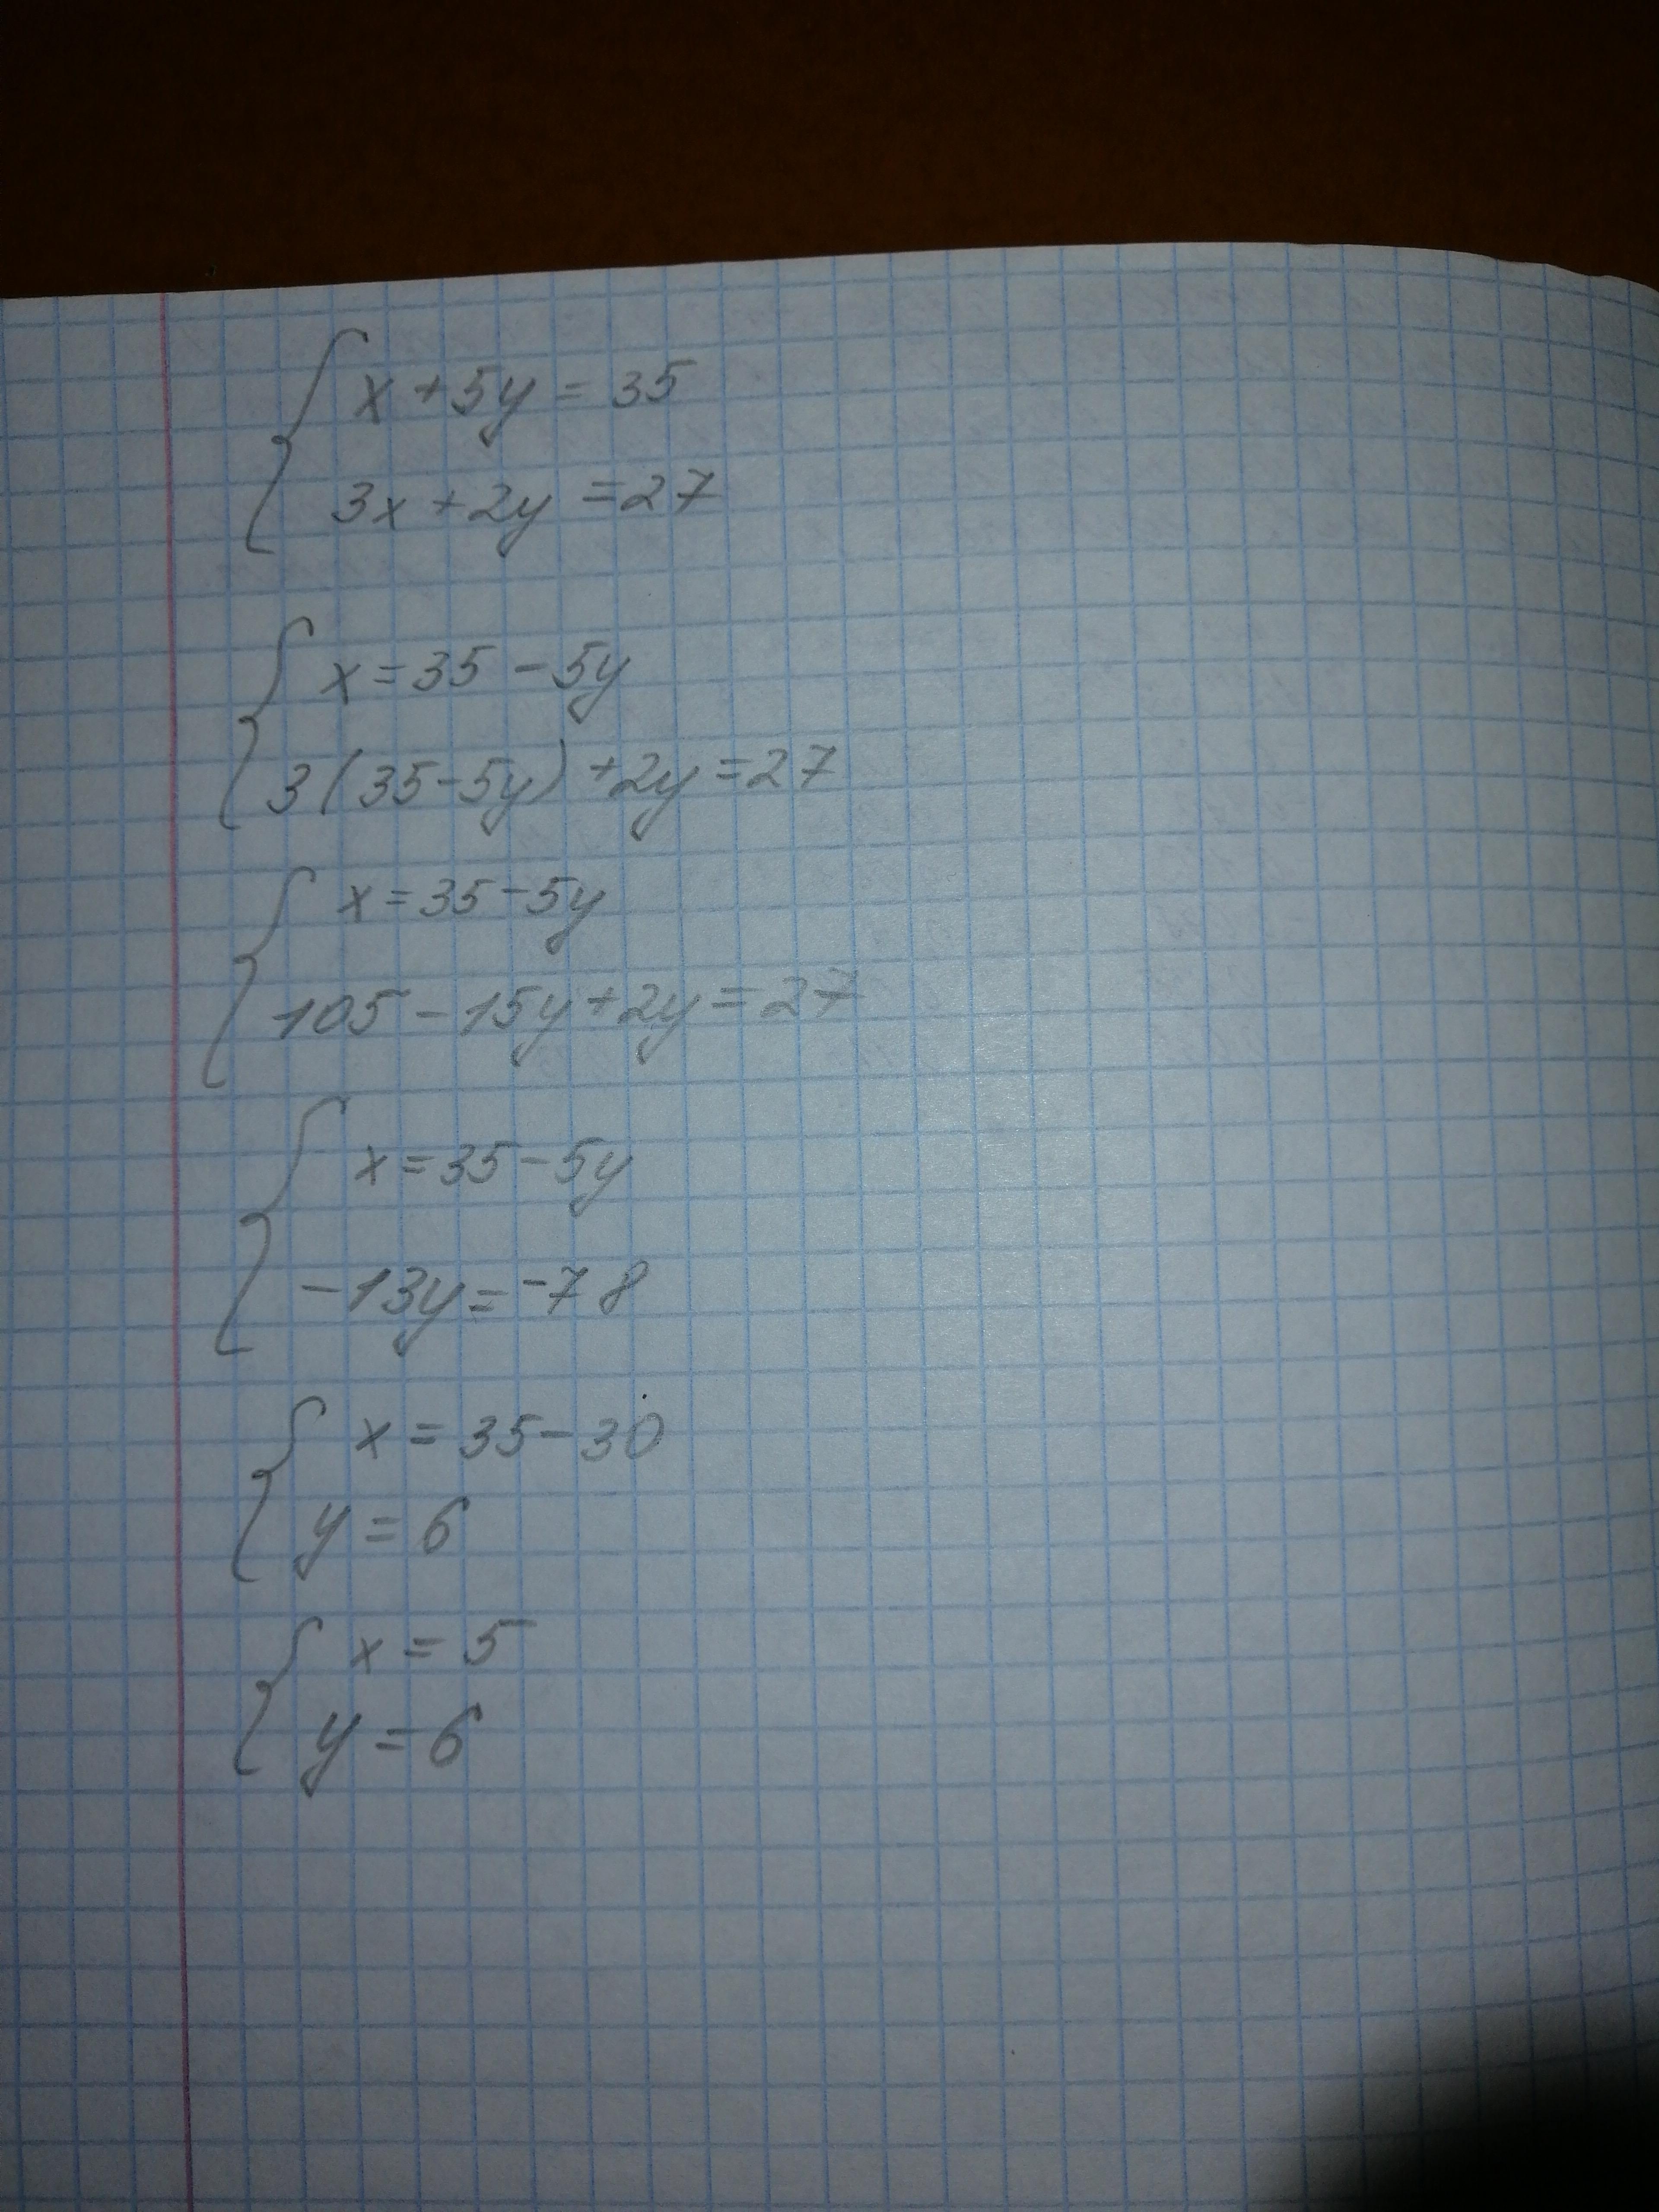 x + 5y = 35
3x + 2y = 27
x = 35 - 5y
3(35 - 5y) + 2y = 27
x = 35 - 5y
105 - 15y + 2y = 27
x = 35 - 5y
-13y = -78
x = 35 - 30
y = 6
x = 5
y = 6